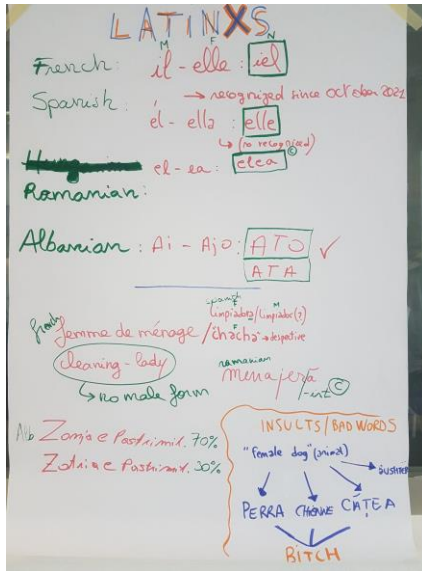 LATINXS
M F N
French: il - elle : iel
→ recognized since october 2021
Spanish: él - ella : elle
↳ (no recognized)
el - ea : elea ©
Romanian:
Albanian: Ai - Ajo : ATO ✓
ATA
spanish F M
limpiadora/limpiador(?)
french femme de ménage / chacha → despective
F
cleaning-lady
↳ no male form
romanian
menajeră
-ist ©
Alb Zonja e Pastrimit. 70%
Zotria e Pastrimit. 30%
INSULTS/BAD WORDS
"female dog" (animal)
PERRA CHIENNE CĂȚEA
BITCH